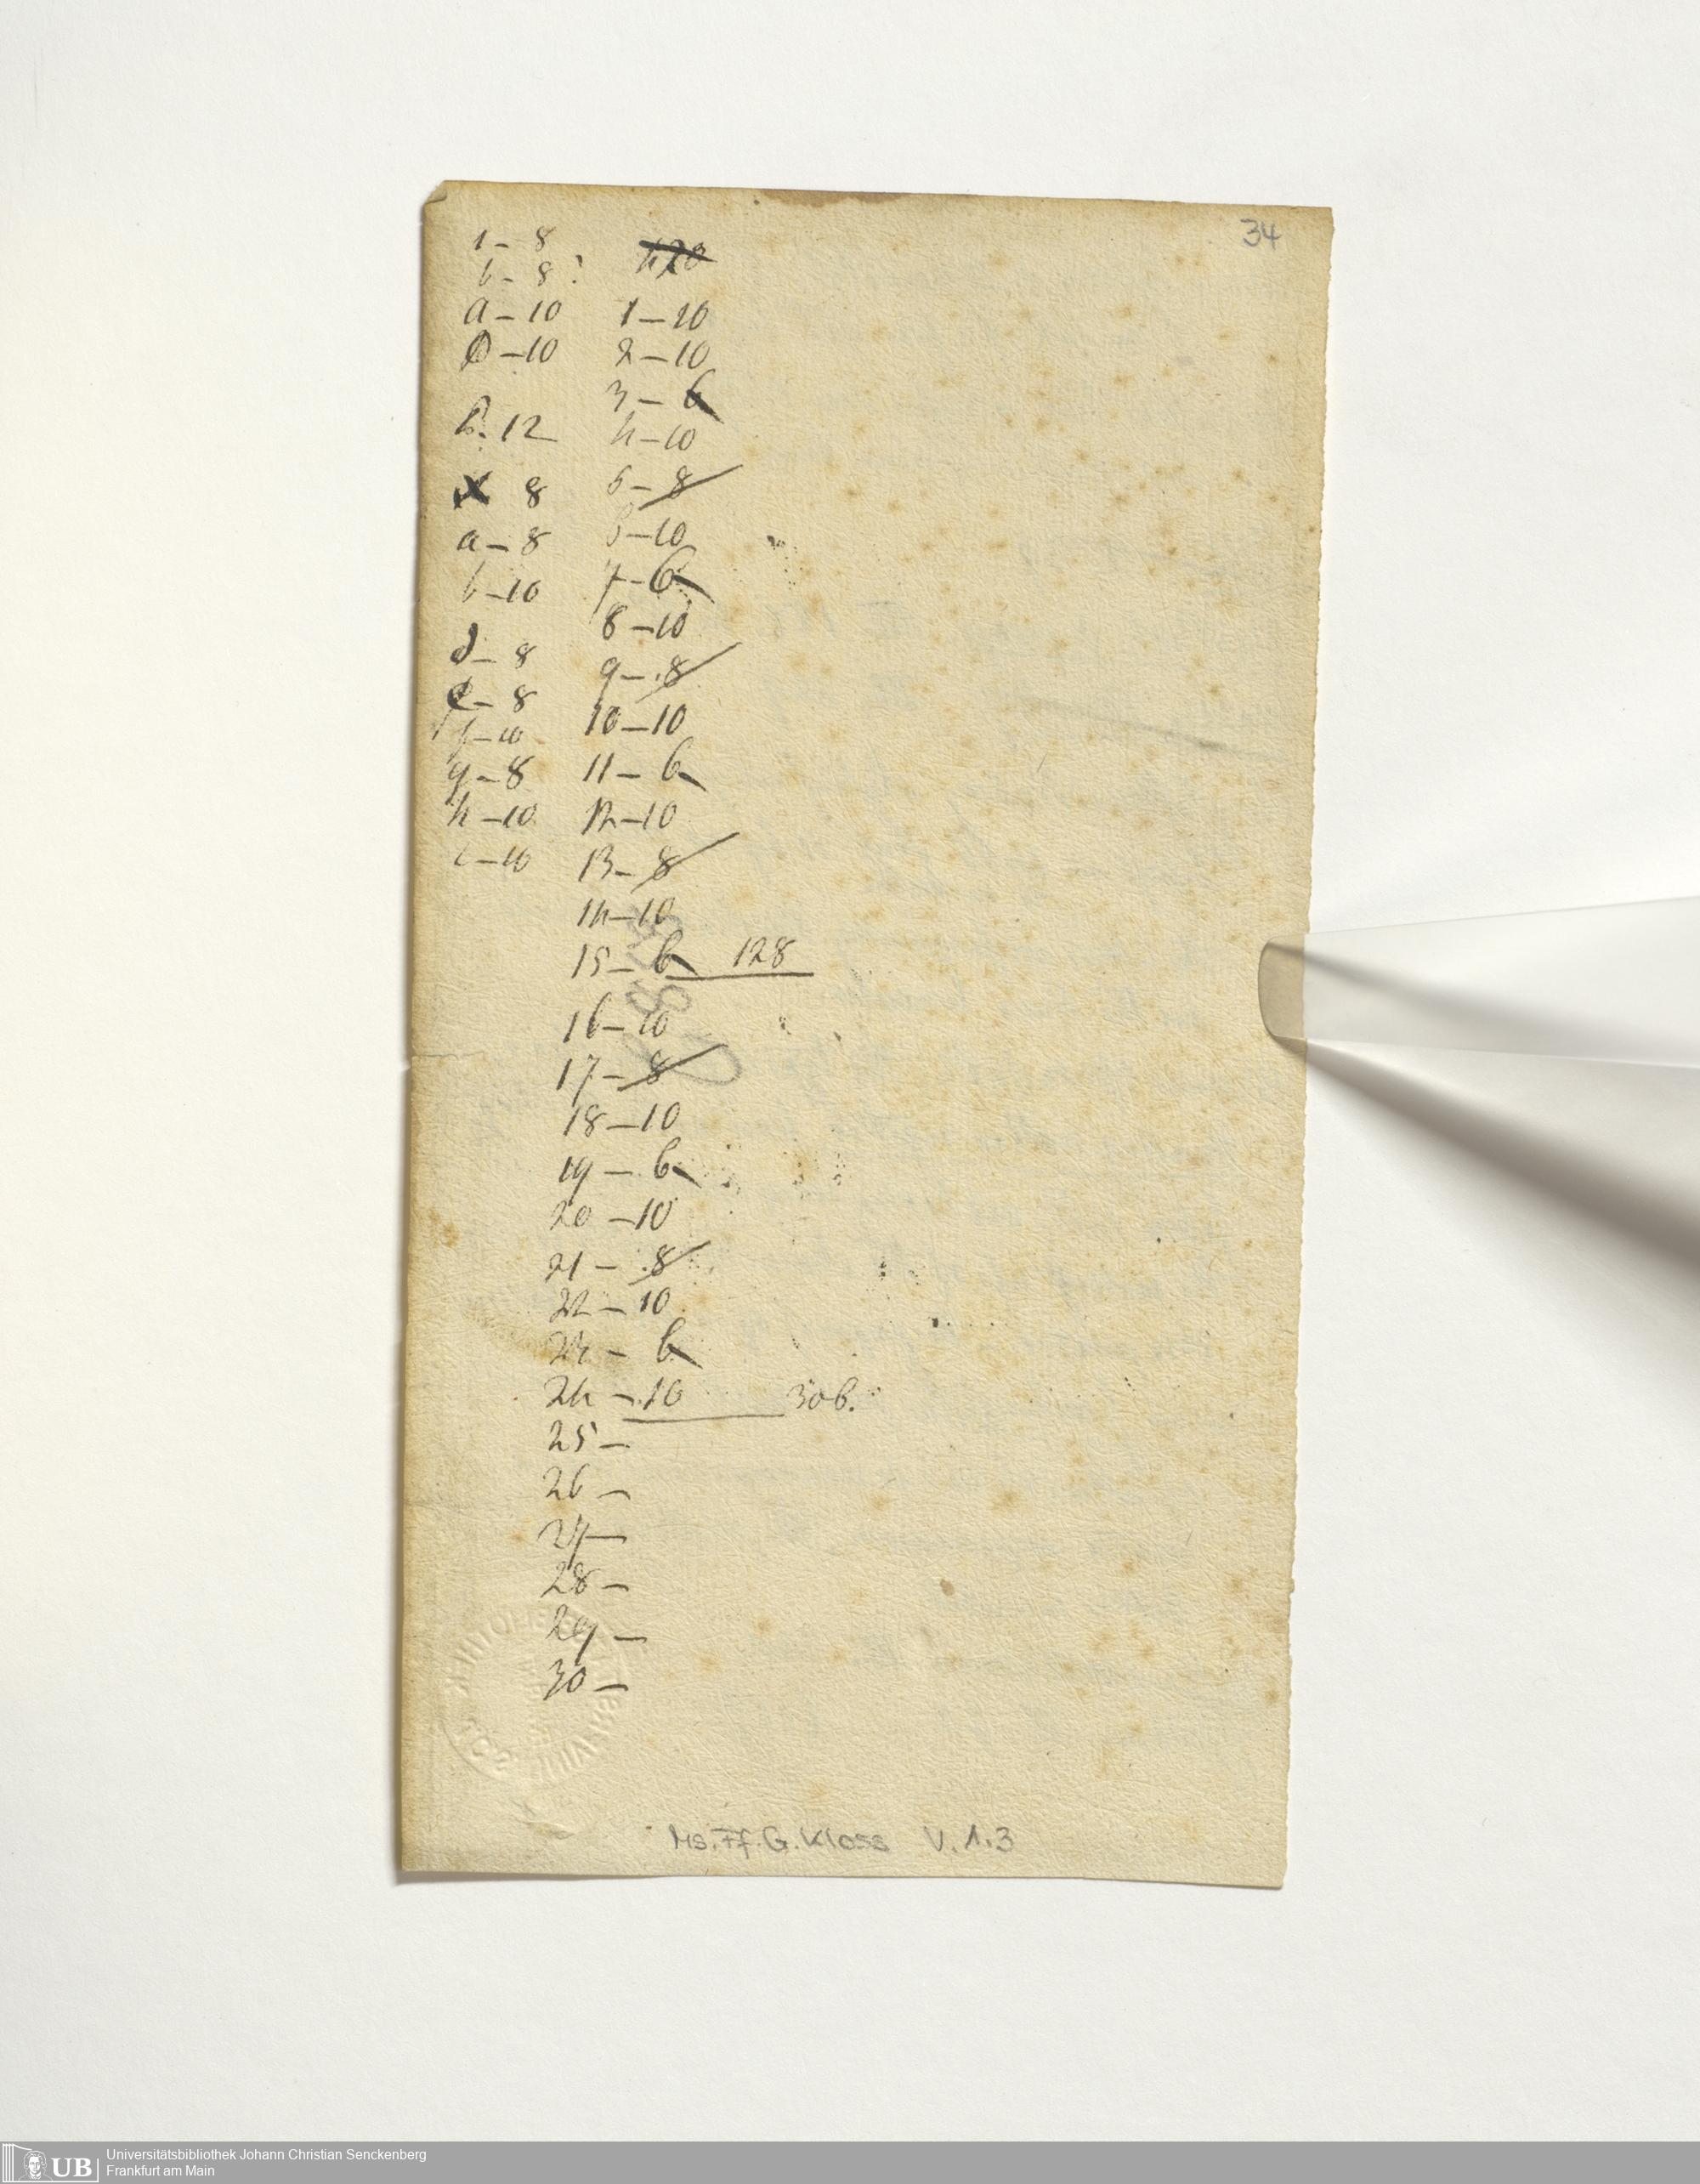 34
1 - 8
b - 8 ?
a - 10
- 10
12
8
a - 8
b - 10
d - 8
e - 8
f - 10
g - 8
h - 10
i - 10
1 - 10
2 - 10
3 - 6
4 - 10
5 - 8
6 - 10
7 - 6
8 - 10
9 - 8
10 - 10
11 - 6
12 - 10
13 - 8
14 - 10
15 - 6 128
16 - 10
17 - 8
18 - 10
19 - 6
20 - 10
21 - 8
22 - 10
23 - 6
24 - 10 306.
25 -
26 -
27 -
28 -
29 -
30 -
Ms. Ff. G. Kloss V. 1.3
UB
Universitätsbibliothek Johann Christian Senckenberg
Frankfurt am Main